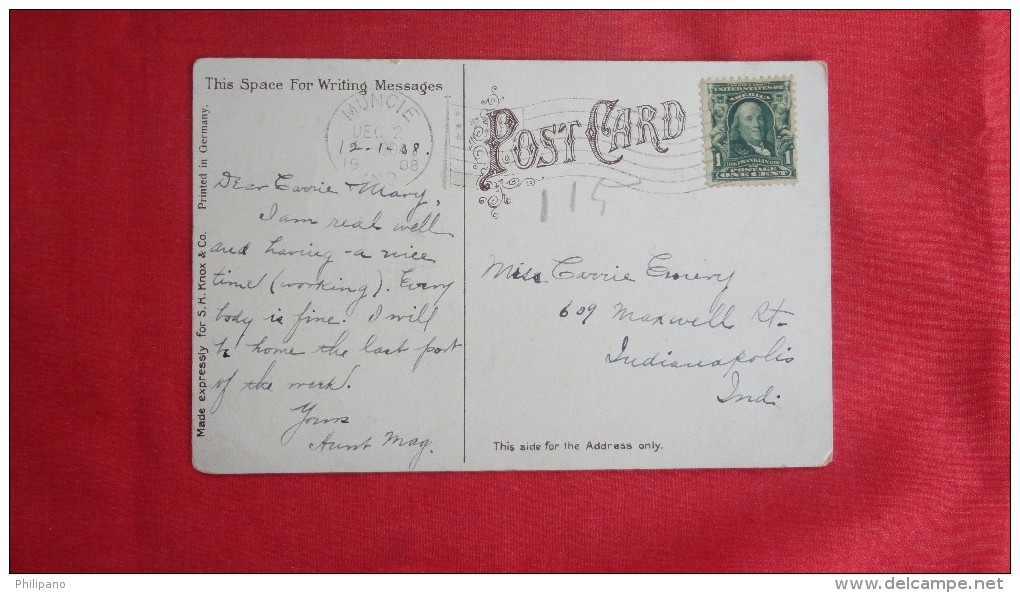 This Space For Writing Messages
MUNCIE
DEC 2
12-1-08.
1908
IND
Dear Carrie & Mary,
I am real well
and having a nice
time (working). Every
body is fine. I will
b' home the last part
of the week.
Yours
Aunt Mag.
Made expressly for S. H. Knox & Co. Printed in Germany.
POST CARD
UNITED STATES OF
AMERICA
1 1
POSTAGE
ONE CENT
115
Miss Carrie Emery
609 Maxwell St.
Indianapolis
Ind.
This side for the Address only.
Philipano
www.delcampe.net